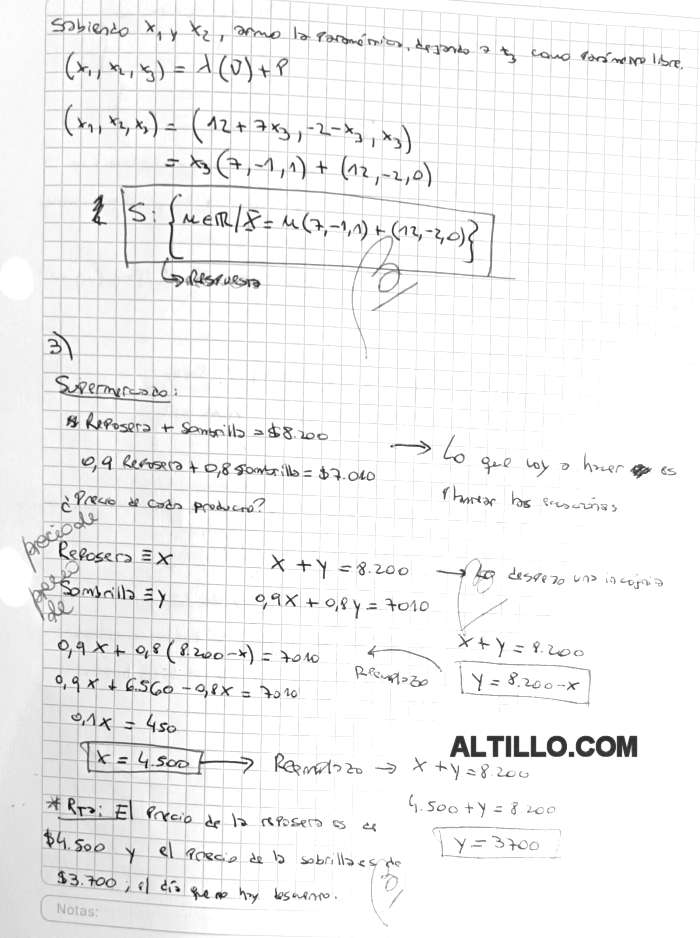 Sabiendo x₁ y x₂, armo la paramétrica, dejando a x₃ como parámetro libre.
(x₁, x₂, x₃) = λ(V) + P
(x₁, x₂, x₃) = (12 + 7x₃, -2 - x₃, x₃)
= x₃(7, -1, 1) + (12, -2, 0)
S: {μ∈ℝ / X̄ = μ(7, -1, 1) + (12, -2, 0)}
↳ Respuesta
3)
Supermercado:
Reposera + Sombrilla = $8.200
0,9 Reposera + 0,8 Sombrilla = $7.010
→ Lo que voy a hacer es
plantear las ecuaciones
¿Precio de cada producto?
precio de
Reposera ≡ x
X + y = 8.200 → despejo una incognita
precio de
Sombrilla ≡ y
0,9x + 0,8y = 7010
x + y = 8.200
0,9x + 0,8(8.200 - x) = 7010
← Reemplazo
y = 8.200 - x
0,9x + 6.560 - 0,8x = 7010
0,1x = 450
ALTILLO.COM
x = 4.500 → Reemplazo → x + y = 8.200
4.500 + y = 8.200
y = 3700
* Rta: El precio de la reposera es de
$4.500 y el precio de la sobrilla es de
$3.700; el día que no hay descuento.
Notas: